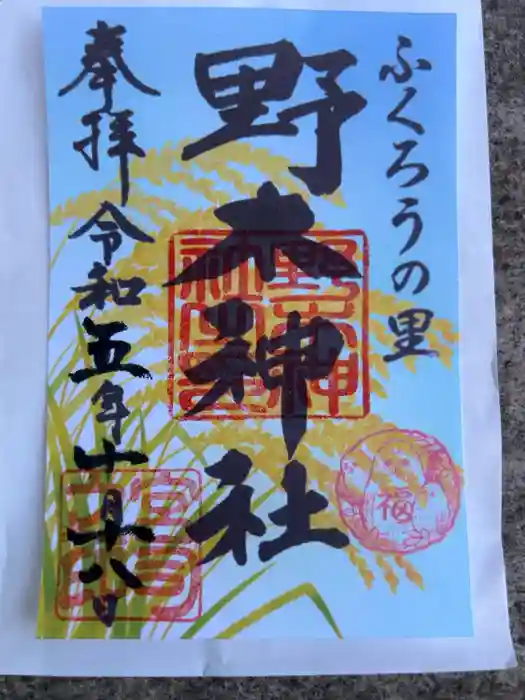 ふくろうの里
野木神社
奉拝 令和五年十月十八日
野木神
社宮司
福